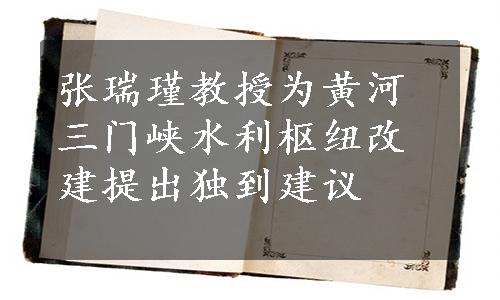 张瑞瑾教授为黄河
三门峡水利枢纽改
建提出独到建议